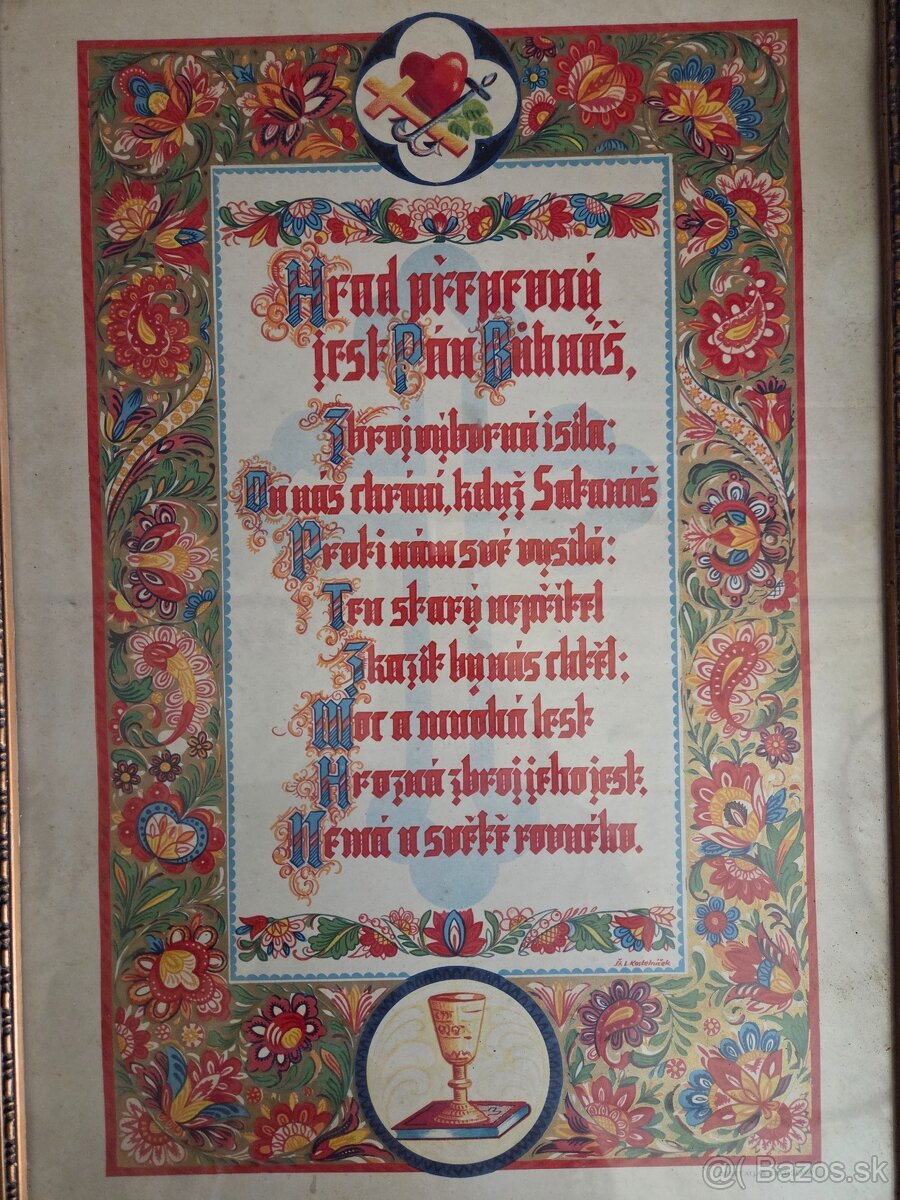 Hrad přepevný
jest Pán Bůh náš,
Zbroj výborná i síla;
On nás chrání, když Satanáš
Proti nám své vysílá:
Ten starý nepřítel
Zkazit by nás chtěl;
Moc a mnohá lest
Hrozná zbroj jeho jest,
Nemá v světě rovného.
Fr. L. Kostelníček
@ Bazos.sk